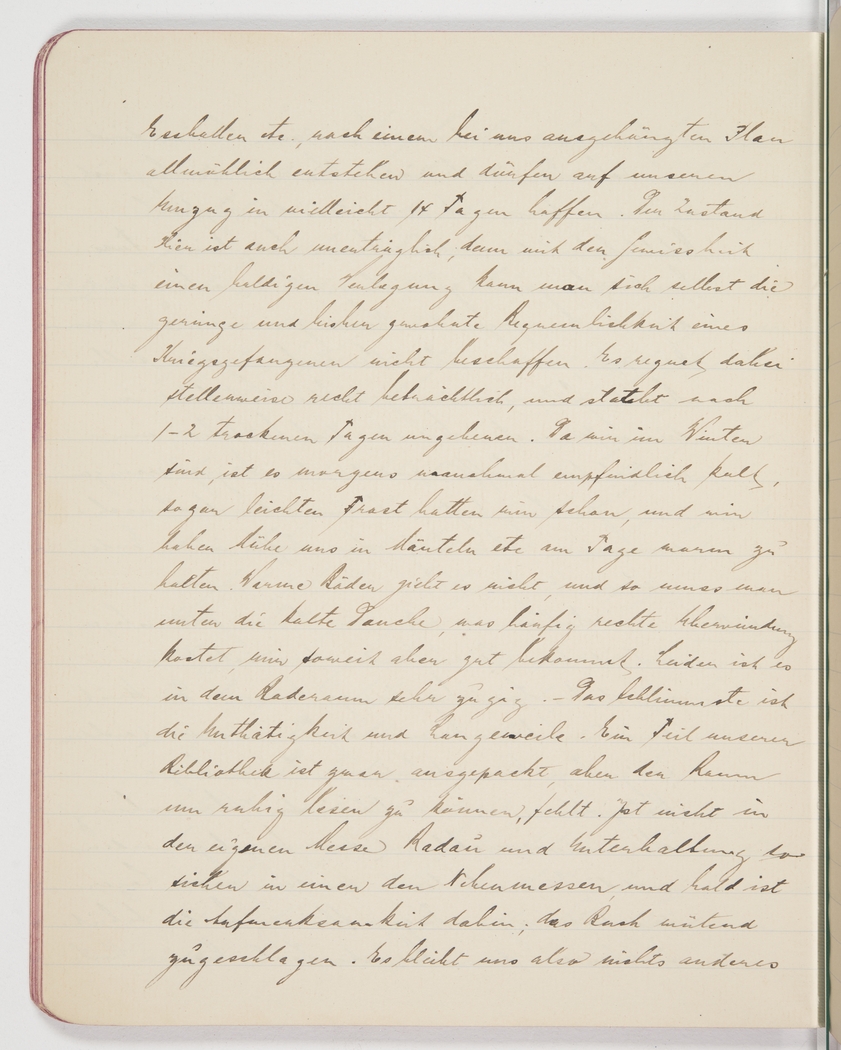 Esshallen etc., nach einem bei uns ausgehängten Plan
allmählich entstehen und dürfen auf unseren
Umzug in vielleicht 14 Tagen hoffen. Der Zustand
hier ist auch unerträglich, denn mit der Gewissheit
einer baldigen Verlegung kann man sich selbst die
geringe und bisher gewohnte Bequemlichkeit eines
Kriegsgefangenen nicht beschaffen. Es regnet dabei
stellenweise recht beträchtlich, und staubt nach
1-2 trockenen Tagen ungeheuer. Da wir im Winter
sind, ist es morgens manchmal empfindlich kalt,
sogar leichten Frost hatten wir schon, und wir
haben Mühe uns in Mänteln etc am Tage warm zu
halten. Warme Bäder giebt es nicht, und so muss man
unter die kalte Douche, was häufig rechte Überwindung
kostet, mir soweit aber gut bekommt. Leider ist es
in dem Baderaum sehr zugig. – Das Schlimmste ist
die Unthätigkeit und Langeweile. Ein Teil unserer
Bibliothek ist zwar ausgepackt, aber der Raum
um ruhig lesen zu können, fehlt. Ist nicht in
der eigenen Messe Radau und Unterhaltung so
sicher in einer der Nebenmessen, und bald ist
die Aufmerksamkeit dahin, das Buch wütend
zugeschlagen. Es bleibt uns also nichts anderes